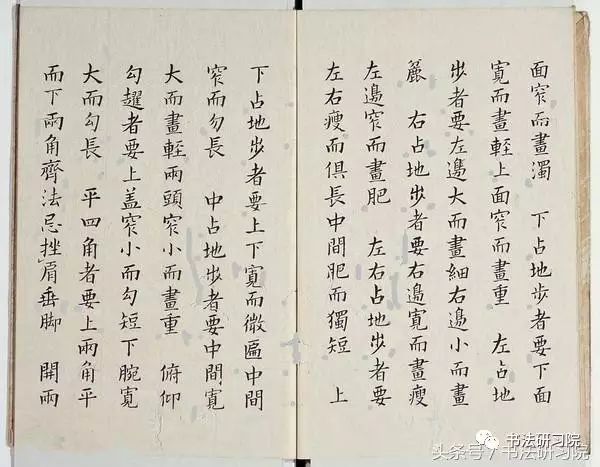 面窄而畫濁　下占地步者要下面
寛而畫輕上面窄而畫重　左占地
步者要左邊大而畫細右邊小而畫
麄　右占地步者要右邊寛而畫瘦
左邊窄而畫肥　左右占地步者要
左右瘦而俱長中間肥而獨短　上
下占地步者要上下寛而微匾中間
窄而勿長　中占地步者要中間寛
大而畫輕兩頭窄小而畫重　俯仰
勾趯者要上盖窄小而勾短下腕寛
大而勾長　平四角者要上兩角平
而下兩角齊法忌挫肩垂脚　開兩
头条号/书法研习院
书法研习院